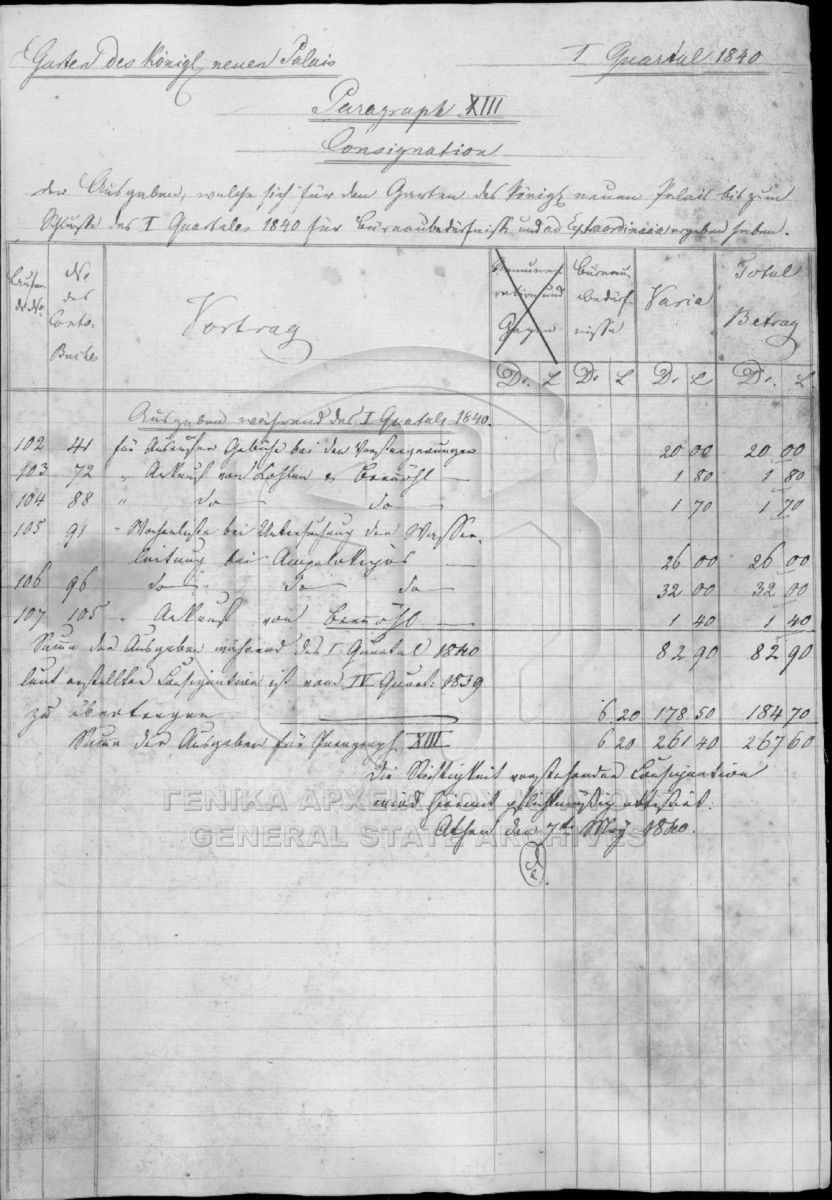 Garten des königl. neuen Palais
I Quartal 1840
Paragraph XIII
Consignation
der Ausgaben, welche sich für den Garten des königl. neuen Palais bis zum
Schlusse des I Quartales 1840 für Bureaubedürfnisse und ad Extraordinaria ergeben haben.
Laufende No.
No des Conto Buches
Vortrag
Remunerationen und Gagen
Büreaubedürfnisse
Varia
Total Betrag
Dr. L Dr L Dr L Dr. L.
Ausgaben während des I Quartals 1840.
102 41 für Ausrufer Gebühr bei den Versteigerungen 20 00 20 00
103 72 " Ankauf von Kohlen & Brennöhl 1 80 1 80
104 88 " do do 1 70 1 70
105 91 " bei Untersuchung der Wasser-
leitung bei Ampelokipos 26 00 26 00
106 96 do do do 32 00 32 00
107 105 " Ankauf von Brennöhl 1 40 1 40
Summa der Ausgaben während des I Quartal 1840 82 90 82 90
laut erstellter Consignation ist vom IV Quart: 1839
zu übertragen 6 20 178 50 184 70
Summa der Ausgaben für Paragraph XIII 6 20 261 40 267 60
Die Richtigkeit vorstehender Consignation
wird hiermit pflichtmäßig attestirt.
Athen den 7t. May 1840.
ΓΕΝΙΚΑ ΑΡΧΕΙΑ ΤΟΥ ΚΡΑΤΟΥΣ
GENERAL STATE ARCHIVES